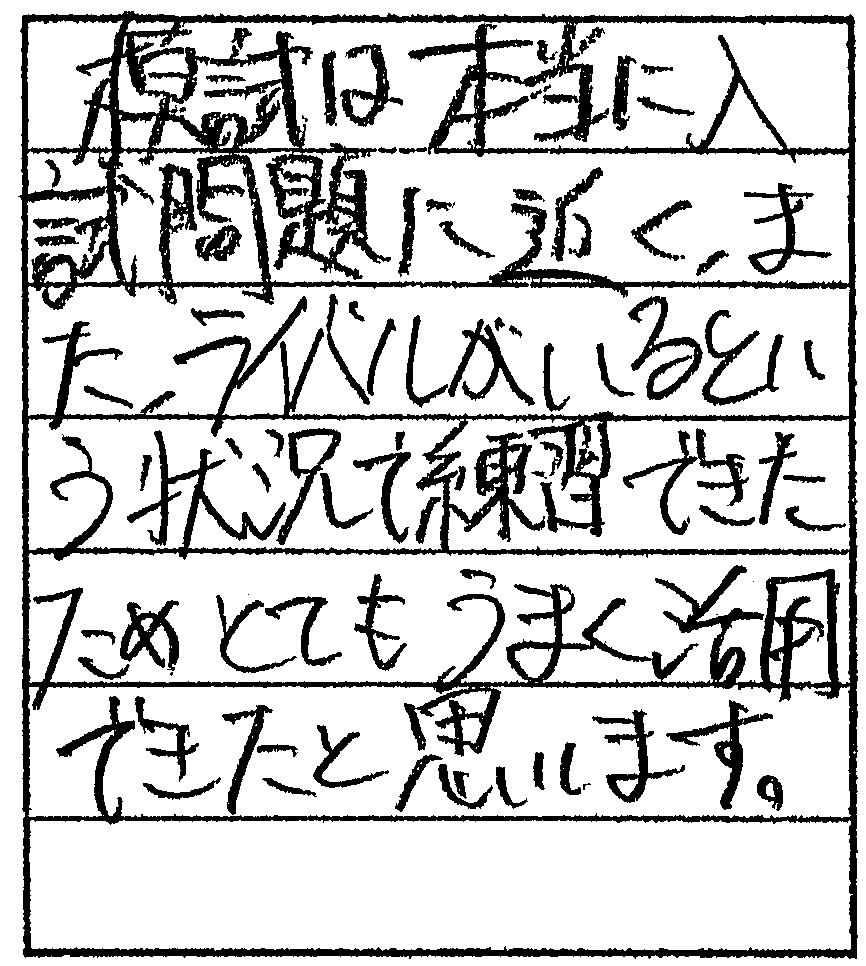 模試は本当に入
試問題に近く、ま
た、ライバルがいるとい
う状況で練習できた
ためとてもうまく活用
できたと思います。